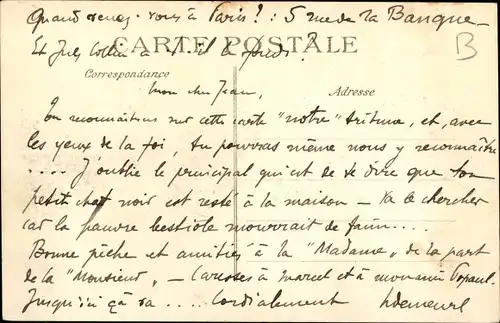 Quand venez-vous à Paris? : 5 rue de la Banque
Et Jules Collin a-t-il la parole?
CARTE POSTALE
B
Correspondance
Adresse
Mon cher Jean,
Tu reconnaîtras sur cette carte "notre" tribune, et, avec
les yeux de la foi, tu pourras même nous y reconnaître
.... J'oublie le principal qui est de te dire que ton
petit chat noir est resté à la maison – Va le chercher
car la pauvre bestiole mourrait de faim....
Bonne pêche et amitiés à la "Madame", de la part
de la "Monsieur", – Caresses à Marcel et à mon ami Popaul.
Jusqu'ici ça va .... Cordialement